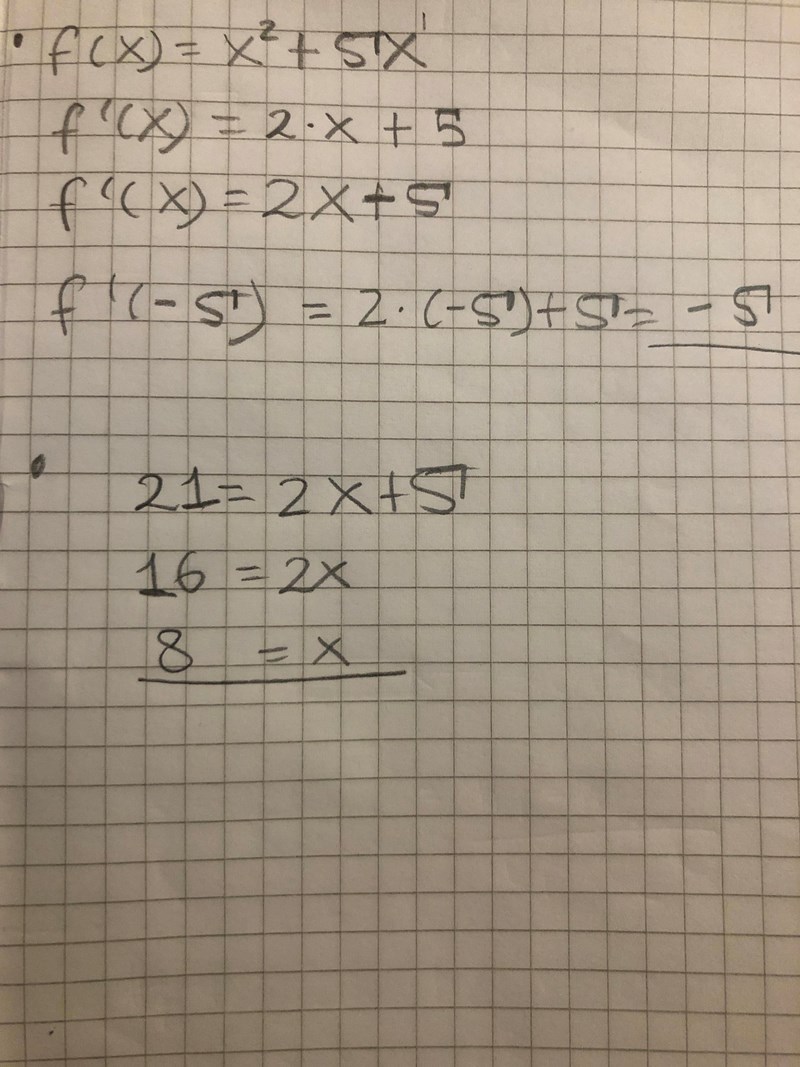 • f(x) = x² + 5x¹
f'(x) = 2·x + 5
f'(x) = 2x+5
f'(-5) = 2·(-5)+5= -5
•
21= 2x+5
16 = 2x
8 = x